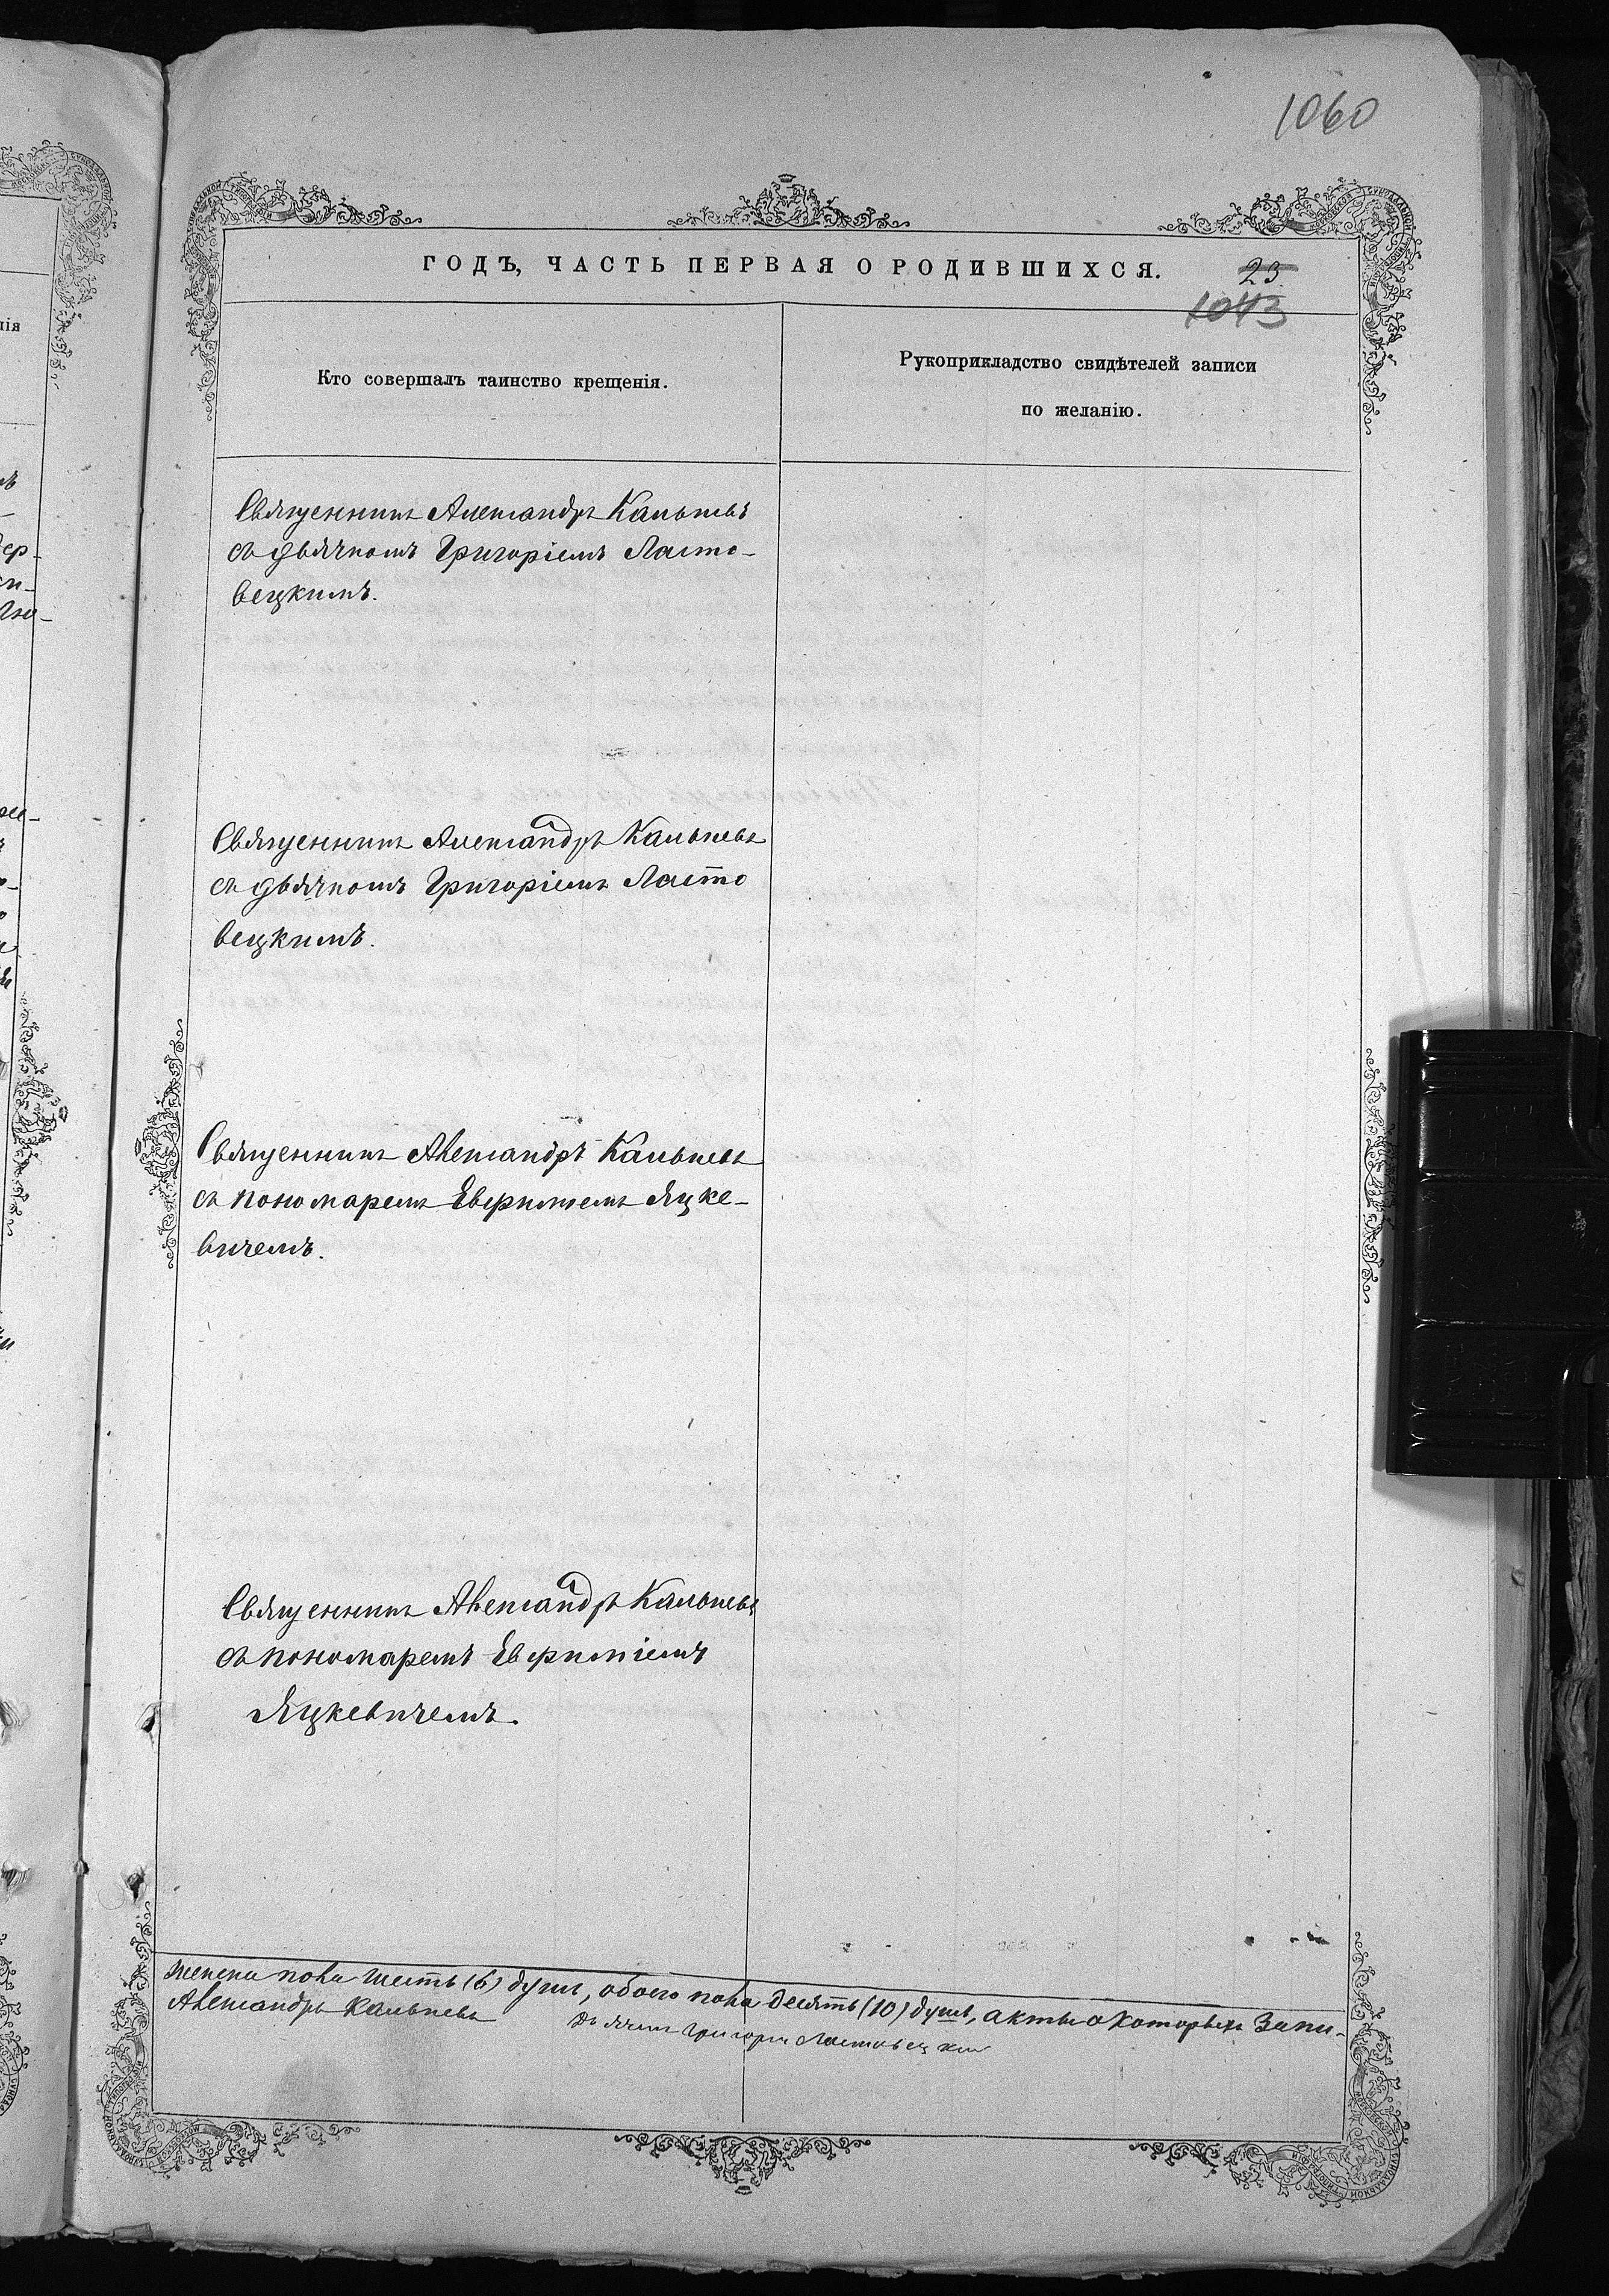 1060
ГОДЪ, ЧАСТЬ ПЕРВАЯ О РОДИВШИХСЯ.
23
1043
Кто совершалъ таинство крещенія.
Рукоприкладство свидѣтелей записи
по желанію.
Священникъ Александръ Кальневъ
съ дьячкомъ Григоріемъ Ласто-
вецкимъ.
Священникъ Александръ Кальневъ
съ дьячкомъ Григоріемъ Ласто
вецкимъ.
Священникъ Александръ Кальневъ
съ пономаремъ Евфиміемъ Яцке-
вичемъ.
Священникъ Александръ Кальневъ
съ пономаремъ Евфиміемъ
Яцкевичемъ.
женска пола шесть (6) душъ, обоего пола десять (10) душъ, акты о которыхъ запи-
Александръ Кальневъ
Дьячекъ Григорій Ластовецкій